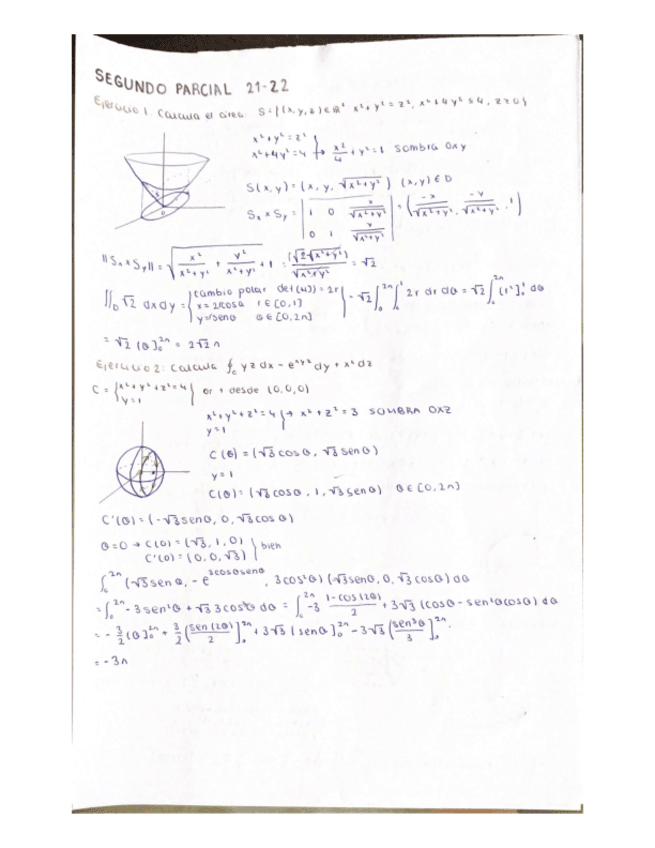 SEGUNDO PARCIAL 21-22
Ejercicio 1. Calcula el área: S={(x,y,z)∈ℝ³ x²+y²=z², x²+4y²≤4, z≥0}
x²+y²=z²
x²+4y²=4 } → x²/4 + y²=1 SOMBRA OXY
S(x,y) = (x, y, √x²+y²) (x,y) ∈ D
Sx × Sy = | 1 0 x/√x²+y² | 0 1 y/√x²+y² | = (-x/√x²+y², -y/√x²+y², 1)
||Sx × Sy|| = √x²/x²+y² + y²/x²+y² + 1 = (√2·√x²+y²)/√x²+y² = √2
∬D √2 dxdy = { cambio polar det(u) = 2r
x = 2rcosθ r∈[0,1]
y = rsenθ θ∈[0,2π] } = √2 ∫₀^2π ∫₀^1 2r dr dθ = √2 ∫₀^2π [r²]₀^1 dθ
= √2 [θ]₀^2π = 2√2 π
Ejercicio 2: Calcula ∮c yz dx - e^xyz dy + x² dz
C = { x²+y²+z²=4
y=1 } or + desde (0,0,0)
x²+y²+z²=4
y=1 } → x²+z²=3 SOMBRA OXZ
C(θ) = (√3 cosθ, √3 senθ)
y=1
C(θ) = (√3 cosθ, 1, √3 senθ) θ∈[0,2π]
C'(θ) = (-√3 senθ, 0, √3 cosθ)
θ=0 → C(0) = (√3, 1, 0)
C'(0) = (0, 0, √3) } bien
∫₀^2π (√3 senθ, -e^3cosθsenθ, 3cos²θ) (√3senθ, 0, √3 cosθ) dθ
= ∫₀^2π -3sen²θ + √3 3cos³θ dθ = ∫₀^2π -3 1-cos(2θ)/2 + 3√3 (cosθ - sen²θcosθ) dθ
= -3/2 [θ]₀^2π + 3/2 [sen(2θ)/2]₀^2π + 3√3 [senθ]₀^2π - 3√3 [sen³θ/3]₀^2π
= -3π